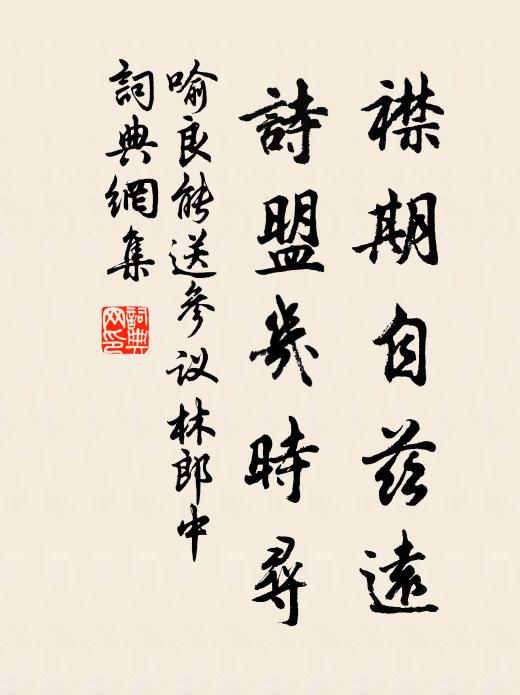 襟期自茲遠
詩盟幾時尋
喻良能送參议林郎中
詞典網集
詞典网印